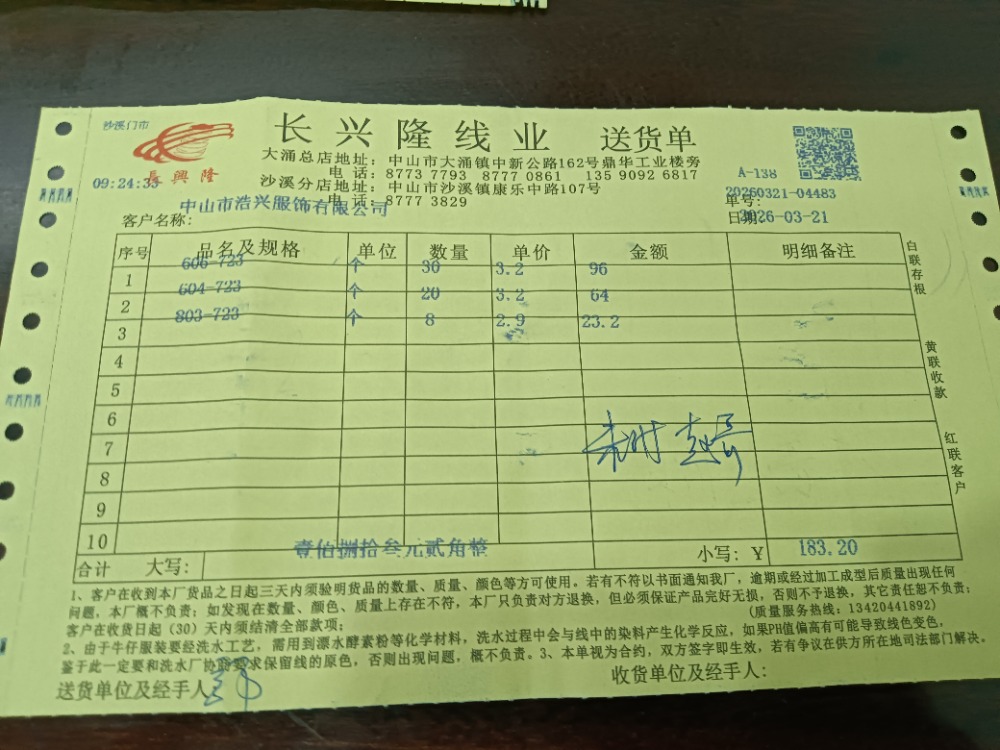 沙溪门市
長興隆
09:24:33
长兴隆线业 送货单
大涌总店地址：中山市大涌镇中新公路162号鼎华工业楼旁
电话：8773 7793 8777 0861 135 9092 6817
沙溪分店地址：中山市沙溪镇康乐中路107号
电话：8777 3829
A-138
单号：20260321-04483
日期：2026-03-21
客户名称：中山市浩兴服饰有限公司
序号 品名及规格 单位 数量 单价 金额 明细备注
1 606-723 个 30 3.2 96
2 604-723 个 20 3.2 64
3 803-723 个 8 2.9 23.2
4
5
6
7
8
9
10
合计 大写：壹佰捌拾叁元贰角整 小写：¥ 183.20
白联存根
黄联收款
红联客户
1、客户在收到本厂货品之日起三天内须验明货品的数量、质量、颜色等方可使用。若有不符以书面通知我厂，逾期或经过加工成型后质量出现任何
问题，本厂概不负责；如发现在数量、颜色、质量上存在不符，本厂只负责对方退换，但必须保证产品完好无损，否则不予退换，其它责任恕不负责；
客户在收货日起（30）天内须结清全部款项； （质量服务热线：13420441892）
2、由于牛仔服装要经洗水工艺，需用到漂水酵素粉等化学材料，洗水过程中会与线中的染料产生化学反应，如果PH值偏高有可能导致线色变色，
鉴于此一定要和洗水厂协商要求保留线的原色，否则出现问题，概不负责。3、本单视为合约，双方签字即生效，若有争议在供方所在地司法部门解决。
送货单位及经手人 收货单位及经手人：